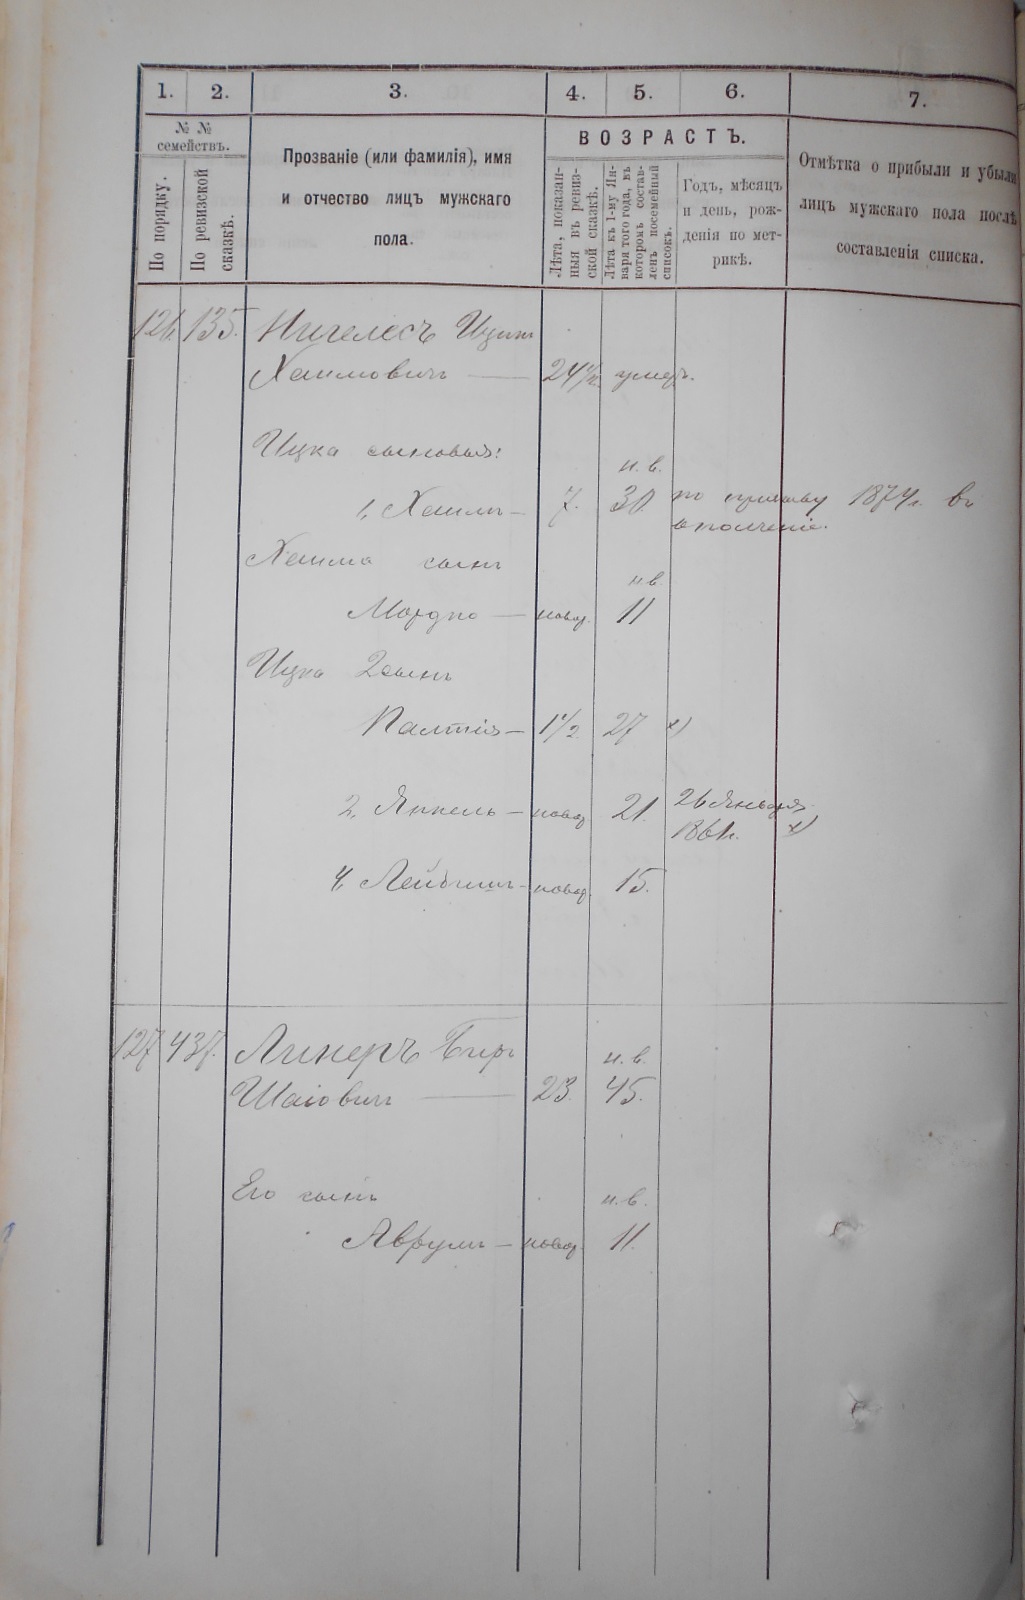 1. 2. 3. 4. 5. 6. 7.
№ № семействъ.
По порядку.
По ревизской сказкѣ.
Прозваніе (или фамилія), имя
и отчество лицъ мужскаго
пола.
ВОЗРАСТЪ.
Лѣта, показан-
ныя въ ревиз-
ской сказкѣ.
Лѣта къ 1-му Ян-
варя того года, въ
которомъ состав-
ленъ посемейный
списокъ.
Годъ, мѣсяцъ
и день, рож-
денія по мет-
рикѣ.
Отмѣтка о прибыли и убыли
лицъ мужскаго пола послѣ
составленія списка.
126. 135. Нигелесъ Ицик
Хаимовичъ — 24 1/2 умеръ.
Ицка сыновья:
н. в.
1, Хаимъ — 7. 30 по призыву 1874 г. въ
ополченіе.
Хаима сынъ
н. в.
Мордко — новор. 11
Ицка 2 сынъ
Палтія — 1 1/2 27 х)
Янкель — новор 21. 26 Января
1861 г. х)
4, Лейбишъ — новор. 15.
127 437. Линеръ Беръ
н. в.
Шаіовичъ — 23. 45.
Его сынъ
н. в.
Аврумъ — новор. 11.